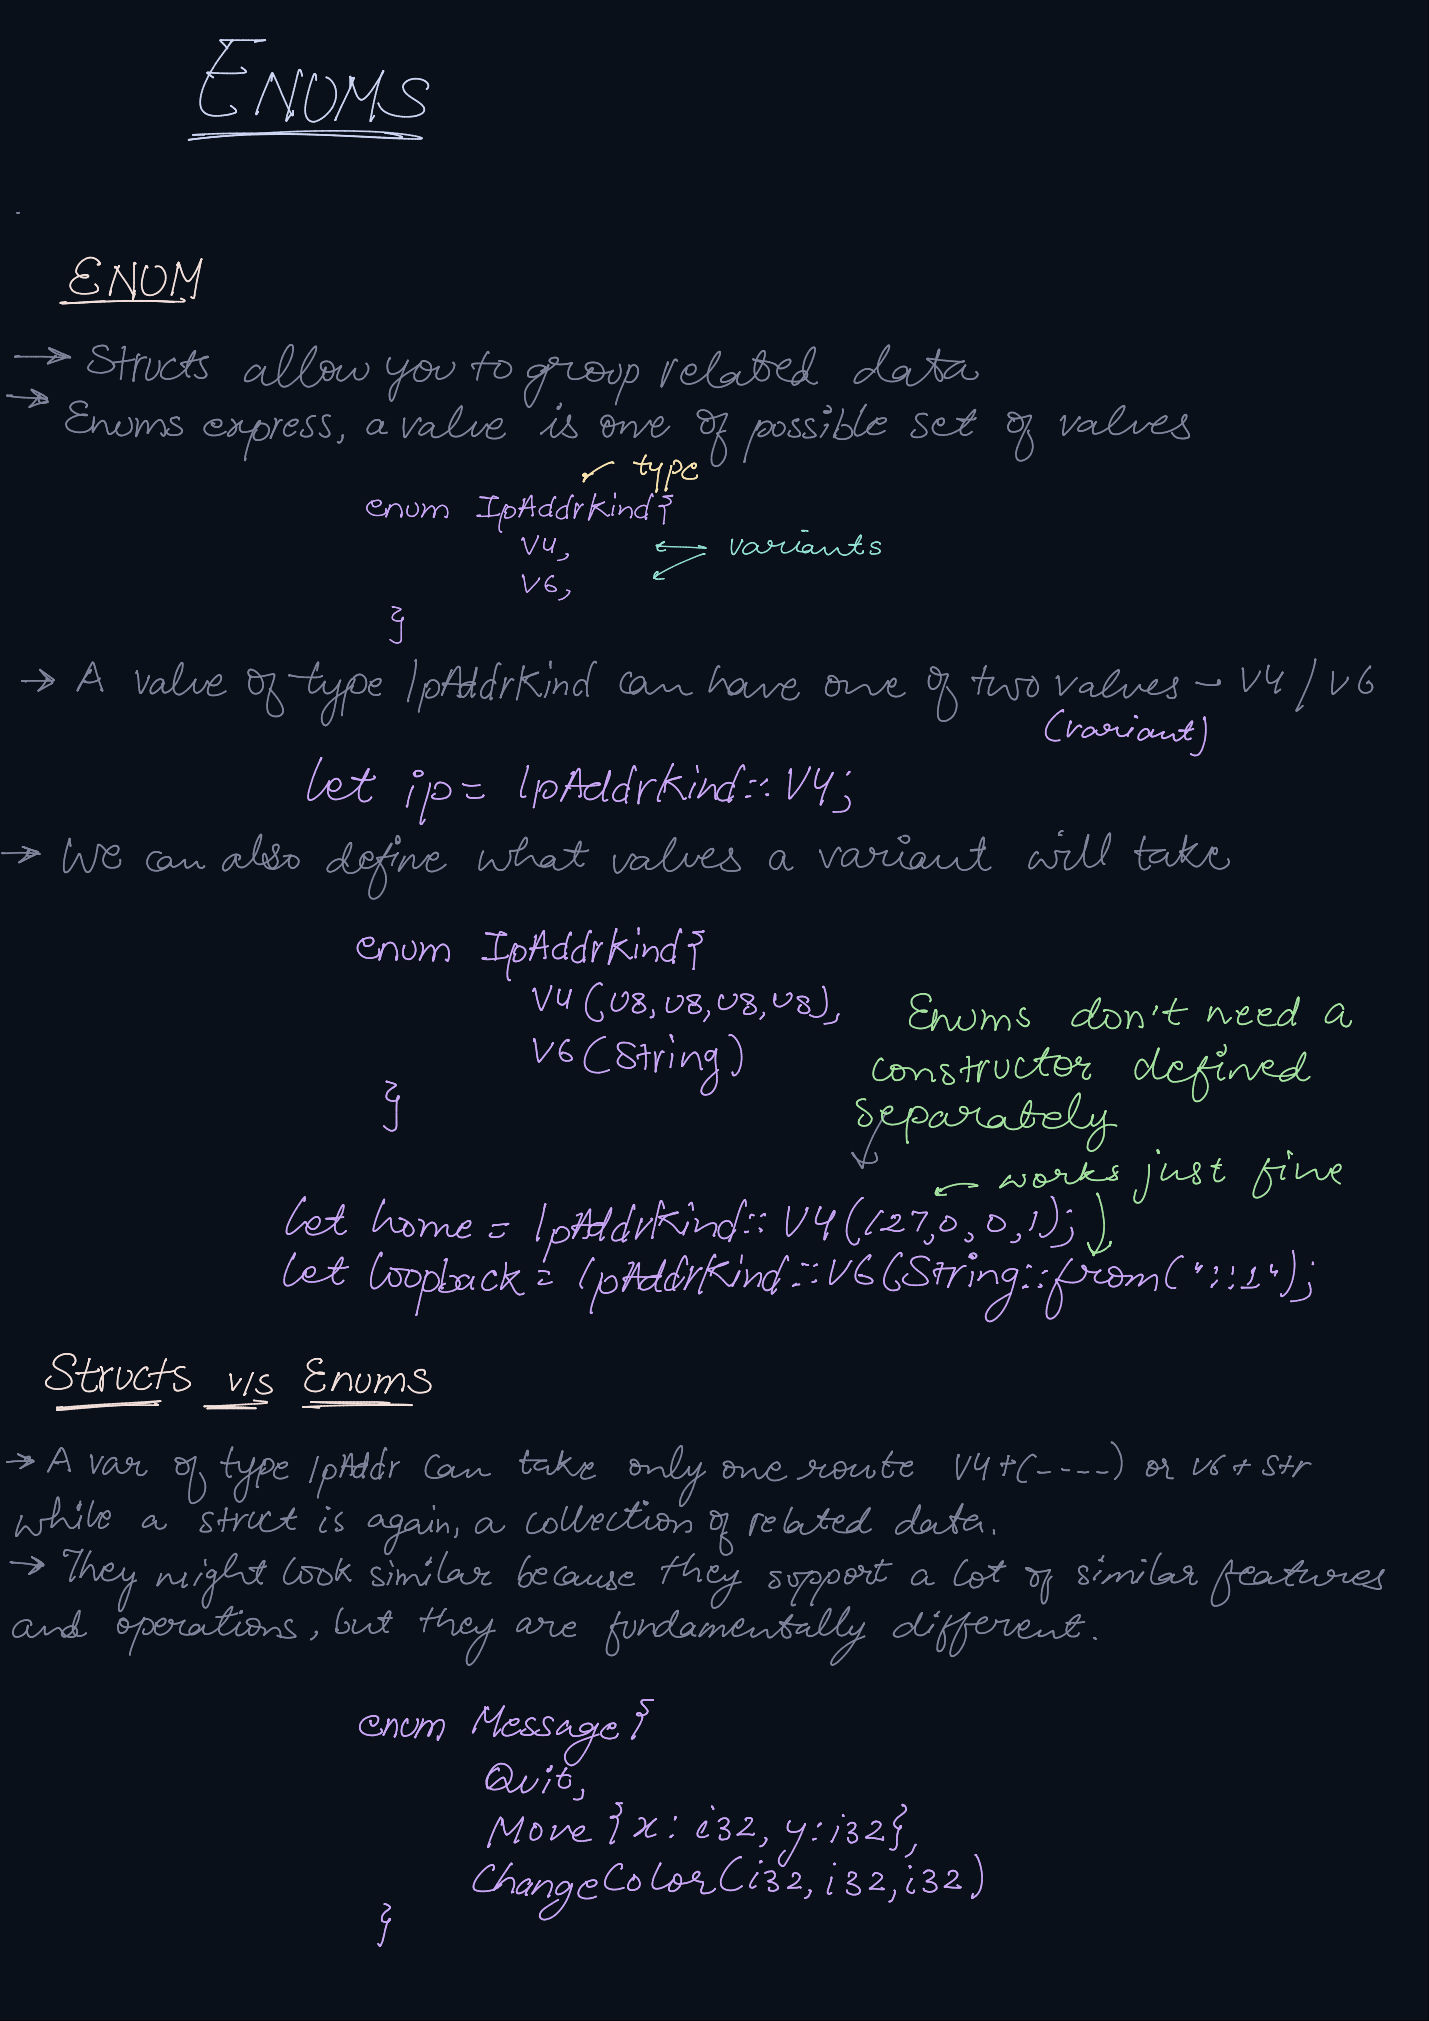 ENUMS
ENUM
→ Structs allow you to group related data
→ Enums express, a value is one of possible set of values
type
enum IpAddrKind{
V4,
variants
V6,
}
→ A value of type IpAddrKind can have one of two values - V4 / V6
(variant)
let ip = IpAddrKind::V4;
→ We can also define what values a variant will take
enum IpAddrKind{
V4(U8, U8, U8, U8),
V6(String)
}
Enums don't need a
constructor defined
separately
works just fine
let home = IpAddrKind::V4(127,0,0,1);
let loopback = IpAddrKind::V6(String::from("::1");
Structs v/s Enums
→ A var of type IpAddr can take only one route V4+(----) or V6 + str
while a struct is again, a collection of related data.
→ They might look similar because they support a lot of similar features
and operations, but they are fundamentally different.
enum Message{
Quit,
Move {x: i32, y: i32},
ChangeColor(i32, i32, i32)
}